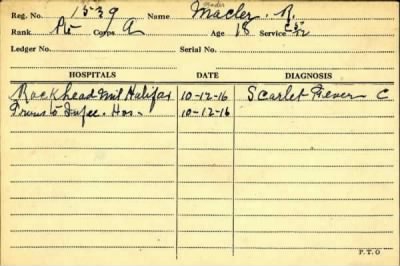 Reg. No. 1539 Name Macley. R.
Rank Pte Corps A Age 18 Service
Ledger No. Serial No.
HOSPITALS DATE DIAGNOSIS
Rockhead Mil Halifax 10-12-16 Scarlet Fever C
Trans to Infec. Hos. 10-12-16
P.T.O